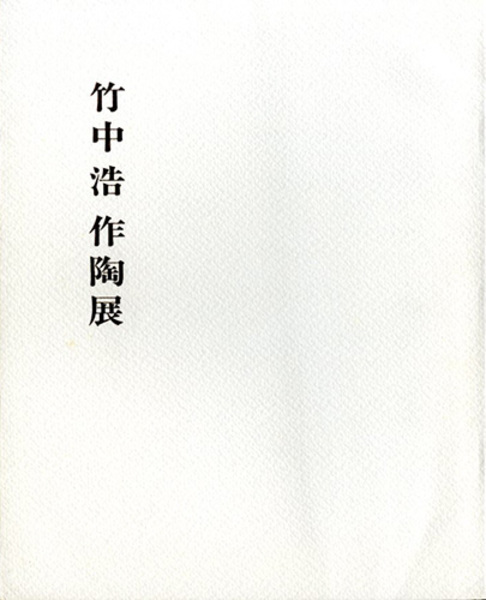 竹中浩作陶展